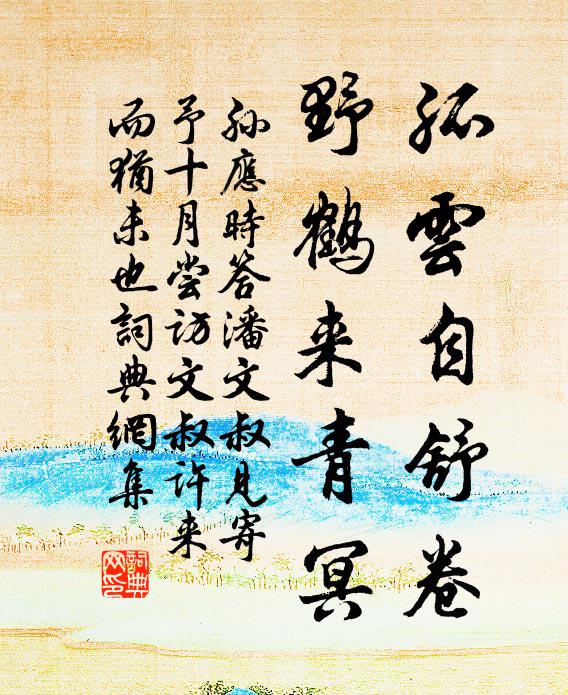 孤雲自舒卷
野鶴来青冥
孫應時答潘文叔見寄
予十月尝訪文叔许来
而猶未也詞典網集
詞典
网印